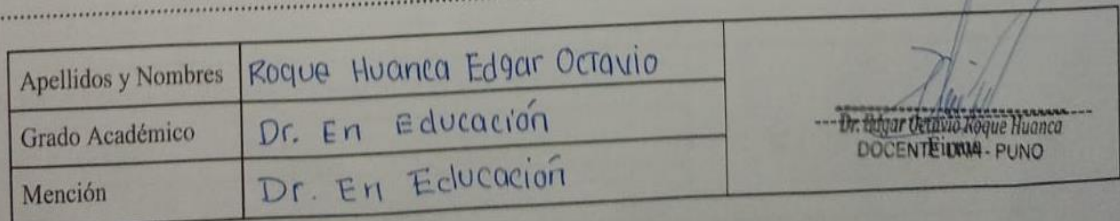 Apellidos y Nombres Roque Huanca Edgar Octavio
Grado Académico Dr. En Educación
Mención Dr. En Educación
Dr. Edgar Octavio Roque Huanca
DOCENTE - PUNO